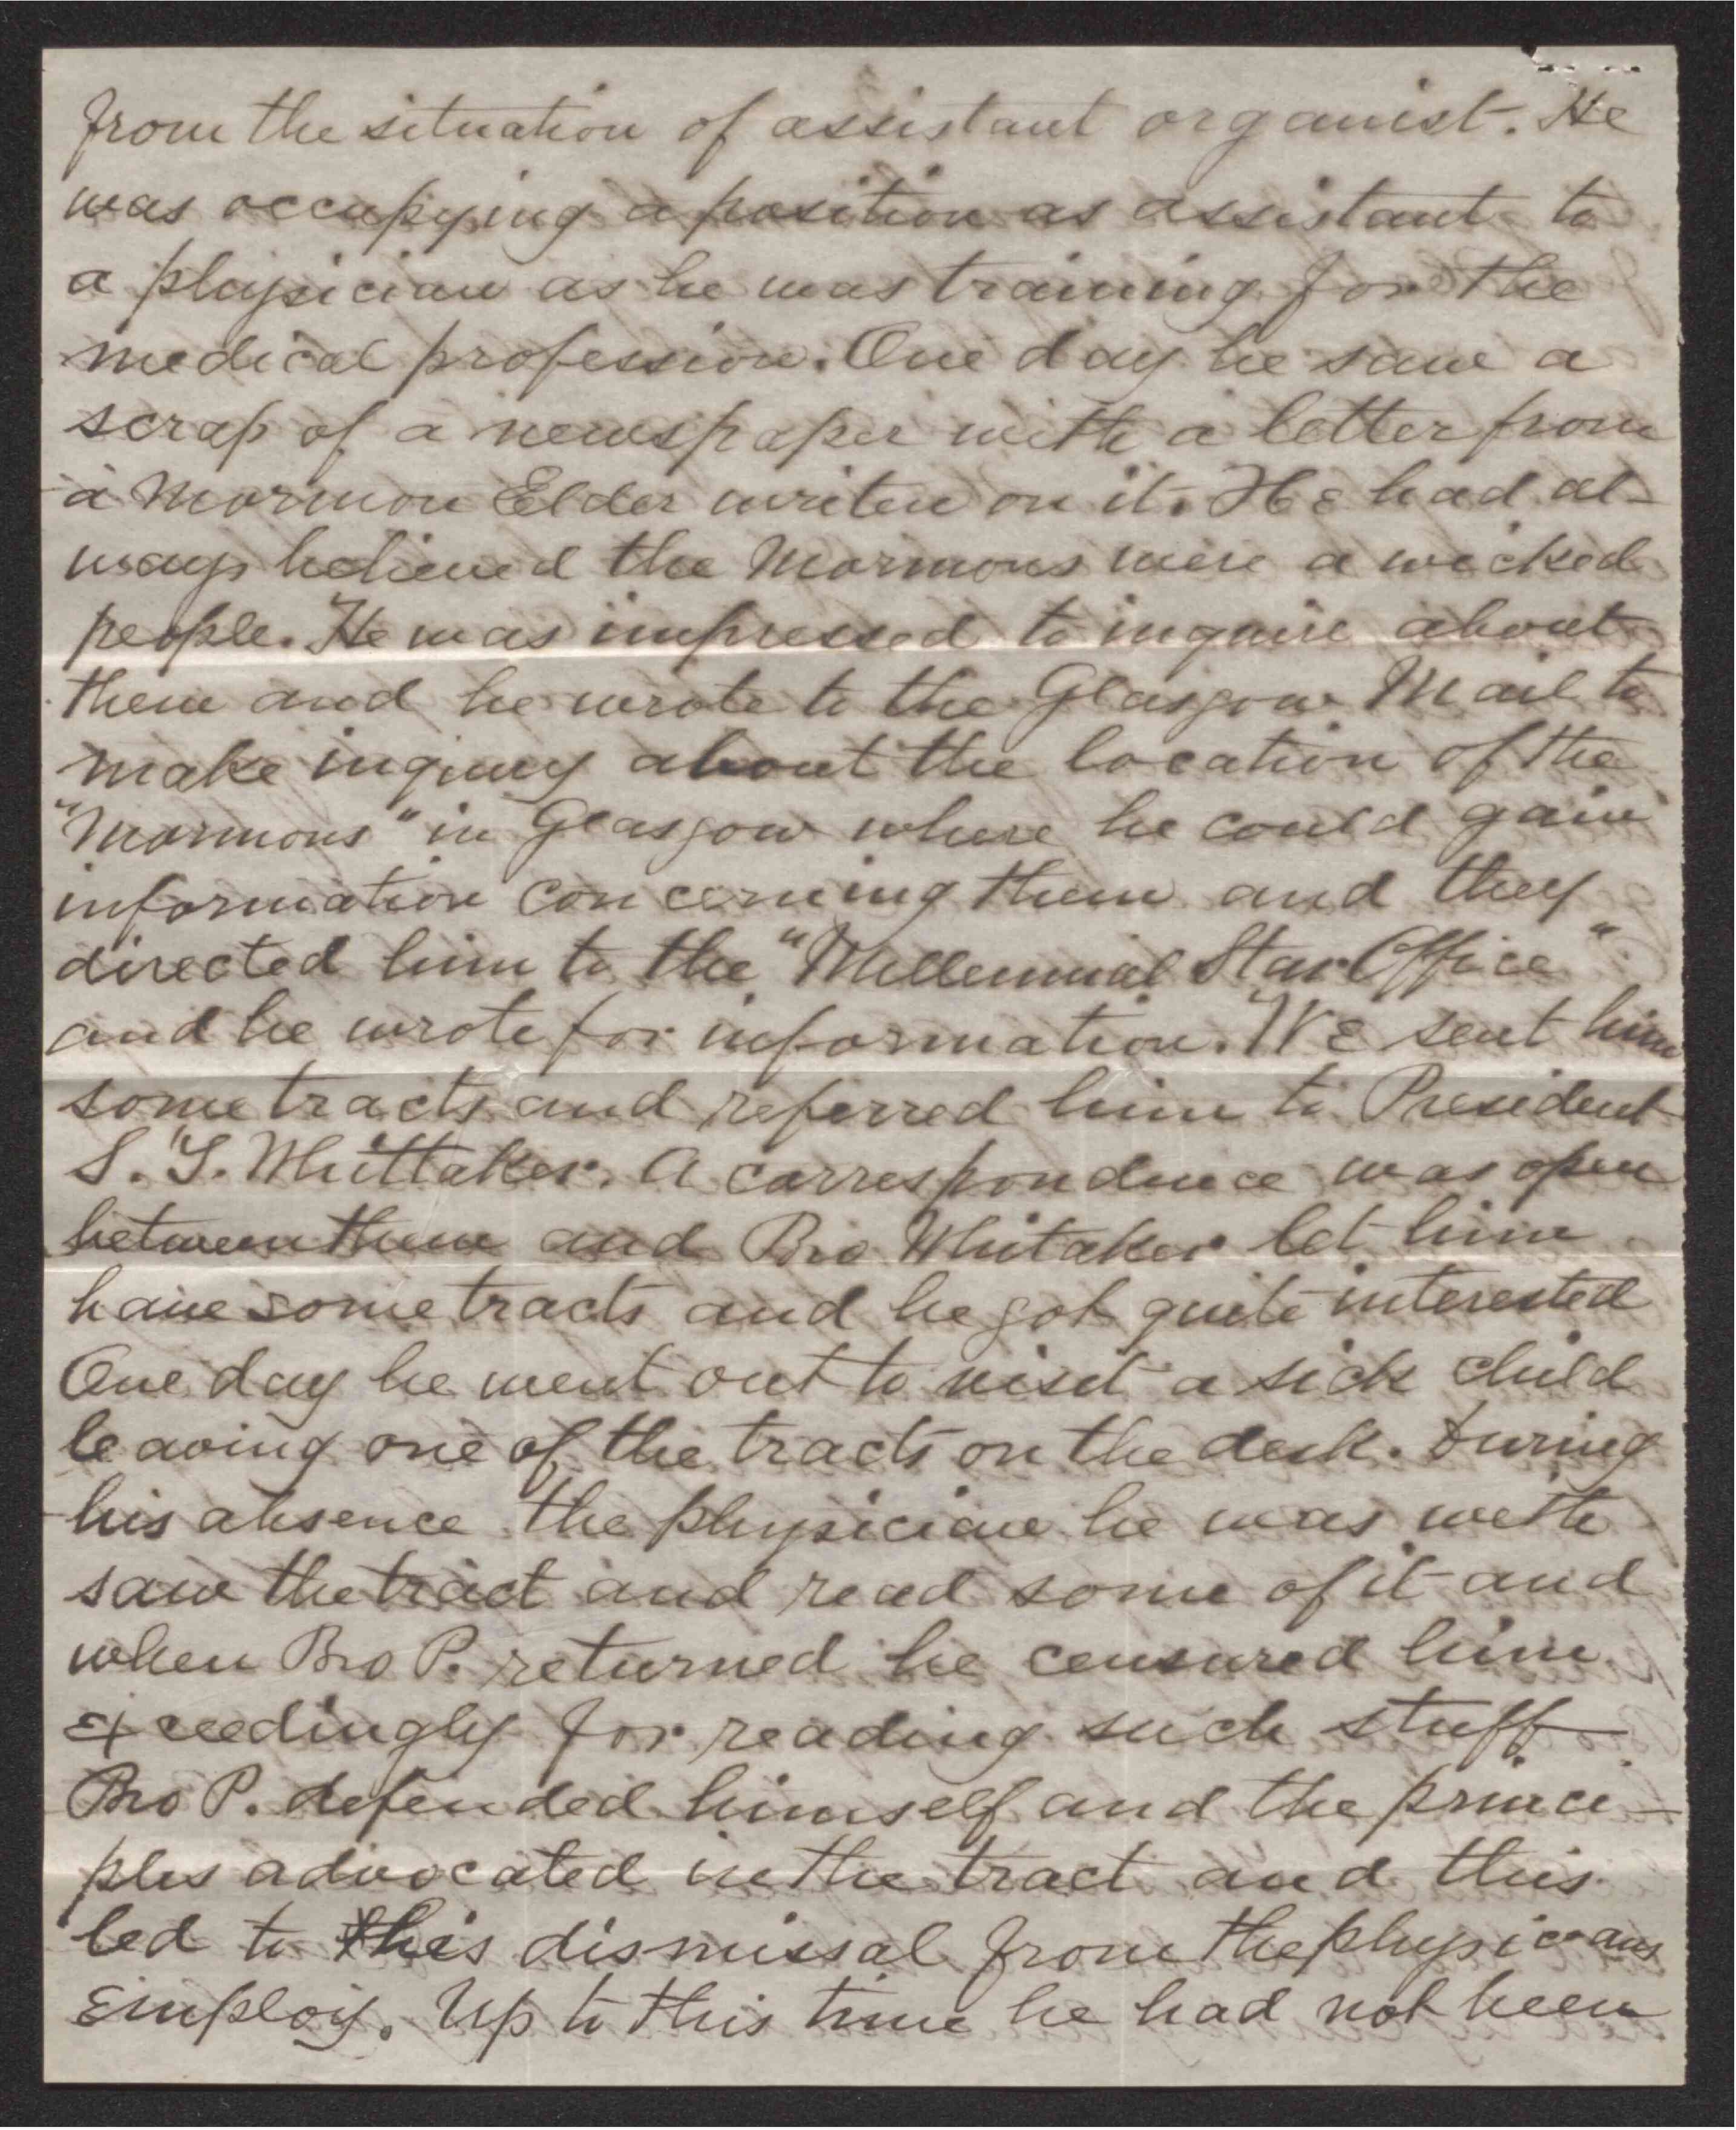 from the situation of assistant organist. He
was occupying a position as assistant to
a physician as he was training for the
medical profession. One day he saw a
scrap of a newspaper with a letter from
a Mormon Elder writen on it. He had al-
ways believed the Mormons were a wicked
people. He was impressed to inquire about
them and he wrote to the Glasgow Mail to
make inquiry about the location of the
"Mormons" in Glasgow where he could gain
information concerning them and they
directed him to the "Millennial Star Office"
and he wrote for information. We sent him
some tracts and referred him to President
S. S. Whittaker. A correspondence was open
between them and Bro Whitaker let him
have some tracts and he got quite interested
One day he went out to visit a sick child
leaving one of the tracts on the desk. During
his absence the physician he was with
saw the tract and read some of it and
when Bro P. returned he censured him
exceedingly for reading such stuff
Bro P. defended himself and the princi-
ples advocated in the tract and this
led to his dismissal from the physicians
employ. Up to this time he had not been